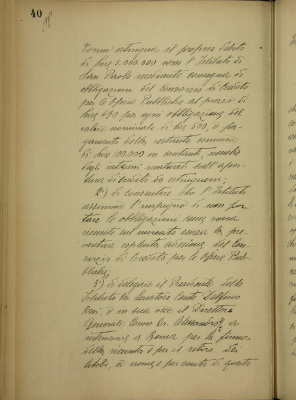 40
estinguere il proprio debito
di Lire 5.000.000 verso l'Istituto di
San Paolo mediante consegna di
obbligazioni del Consorzio di Credito
per le Opere Pubbliche al prezzo di
Lire 490 per ogni obbligazione del
valore nominale di Lire 500, e pa-
gamento della restante somma
di Lire 100.000 in contanti,
degli interessi maturati sull'aper-
tura di credito da estinguersi;
2°) di consentire che l'Istituto
assuma l'impegno di non por-
tare le obbligazioni come sopra
cedute sul mercato senza la pre-
ventiva esplicita adesione del Con-
sorzio di Credito per le Opere Pub-
bliche;
3°) di delegare il Presidente dello
Istituto On. Senatore Conte Delfino
Orsi, o in sua vece il Direttore
Generale Comm. Dr. Alessandro a
a Roma per la firma
della e per il ritiro
titoli, a nome e per conto di questo